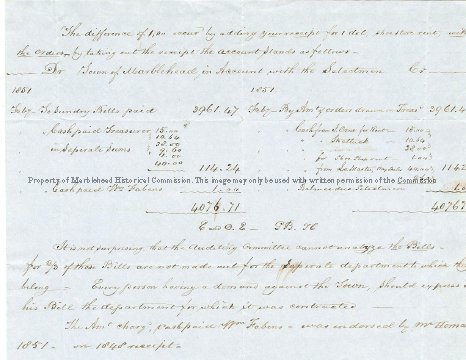 The difference of 1,00 occur by adding your receipt for 1 dol, shoe stor rent, with
the Order by taking out the receipt the account stands as follows -
Dr Town of Marblehead in Account with the Selectmen Cr
1851 1851
Feby - To Sundry Bills paid 3961.47 Feby - By Amt of orders drawn on Treasr 3961.4
Cash paid Treasurer 15.00 Cash from
10.64 10.64
in Seperate sums
4.00 for Shop rent 1.00
40.00
114.24 114 2
Property of Marblehead Historical Commission. This image may only be used with written permission of the Commission
Cash paid Wm Fabens 1.00 Balance due Selectmen 1.0
4076.71 4076 7
It is not surprising that the Auditing Committee cannot analyze the Bills -
for 2/3 of those Bills are not made out for the seperate department to which they
belong - Every person having a demand against the Town, should express in
his Bill the department for which it was contracted -
The Amt charg'd, cash paid Wm Fabens - was endorsed by Mr
1851 - on 1848 receipt -